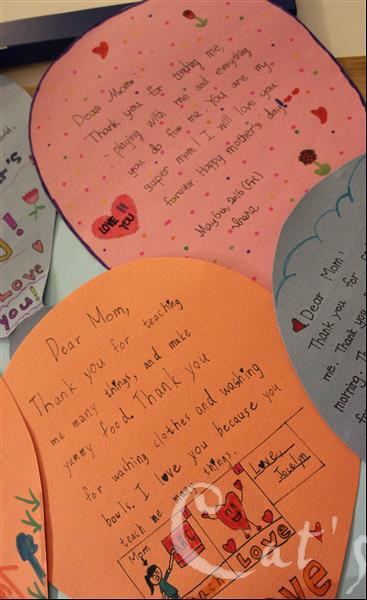 Dear Mom:
Thank you for
playing with me and everything
you do for me. You are my
super mom! I will love you
forever. Happy mother's day!
May 6th, 2016 (Fri)
LOVE
YOU
Love
you!
Dear Mom:
Thank you for
me. Thank you
morning. Th
for
Dear Mom,
Thank you for teaching
me many things, and make
yummy food. Thank you
for washing clothes and washing
bowls. I love you because you
teach me many things.
Love,
Jocelyn
Mom
LOVE
Love
Cat's